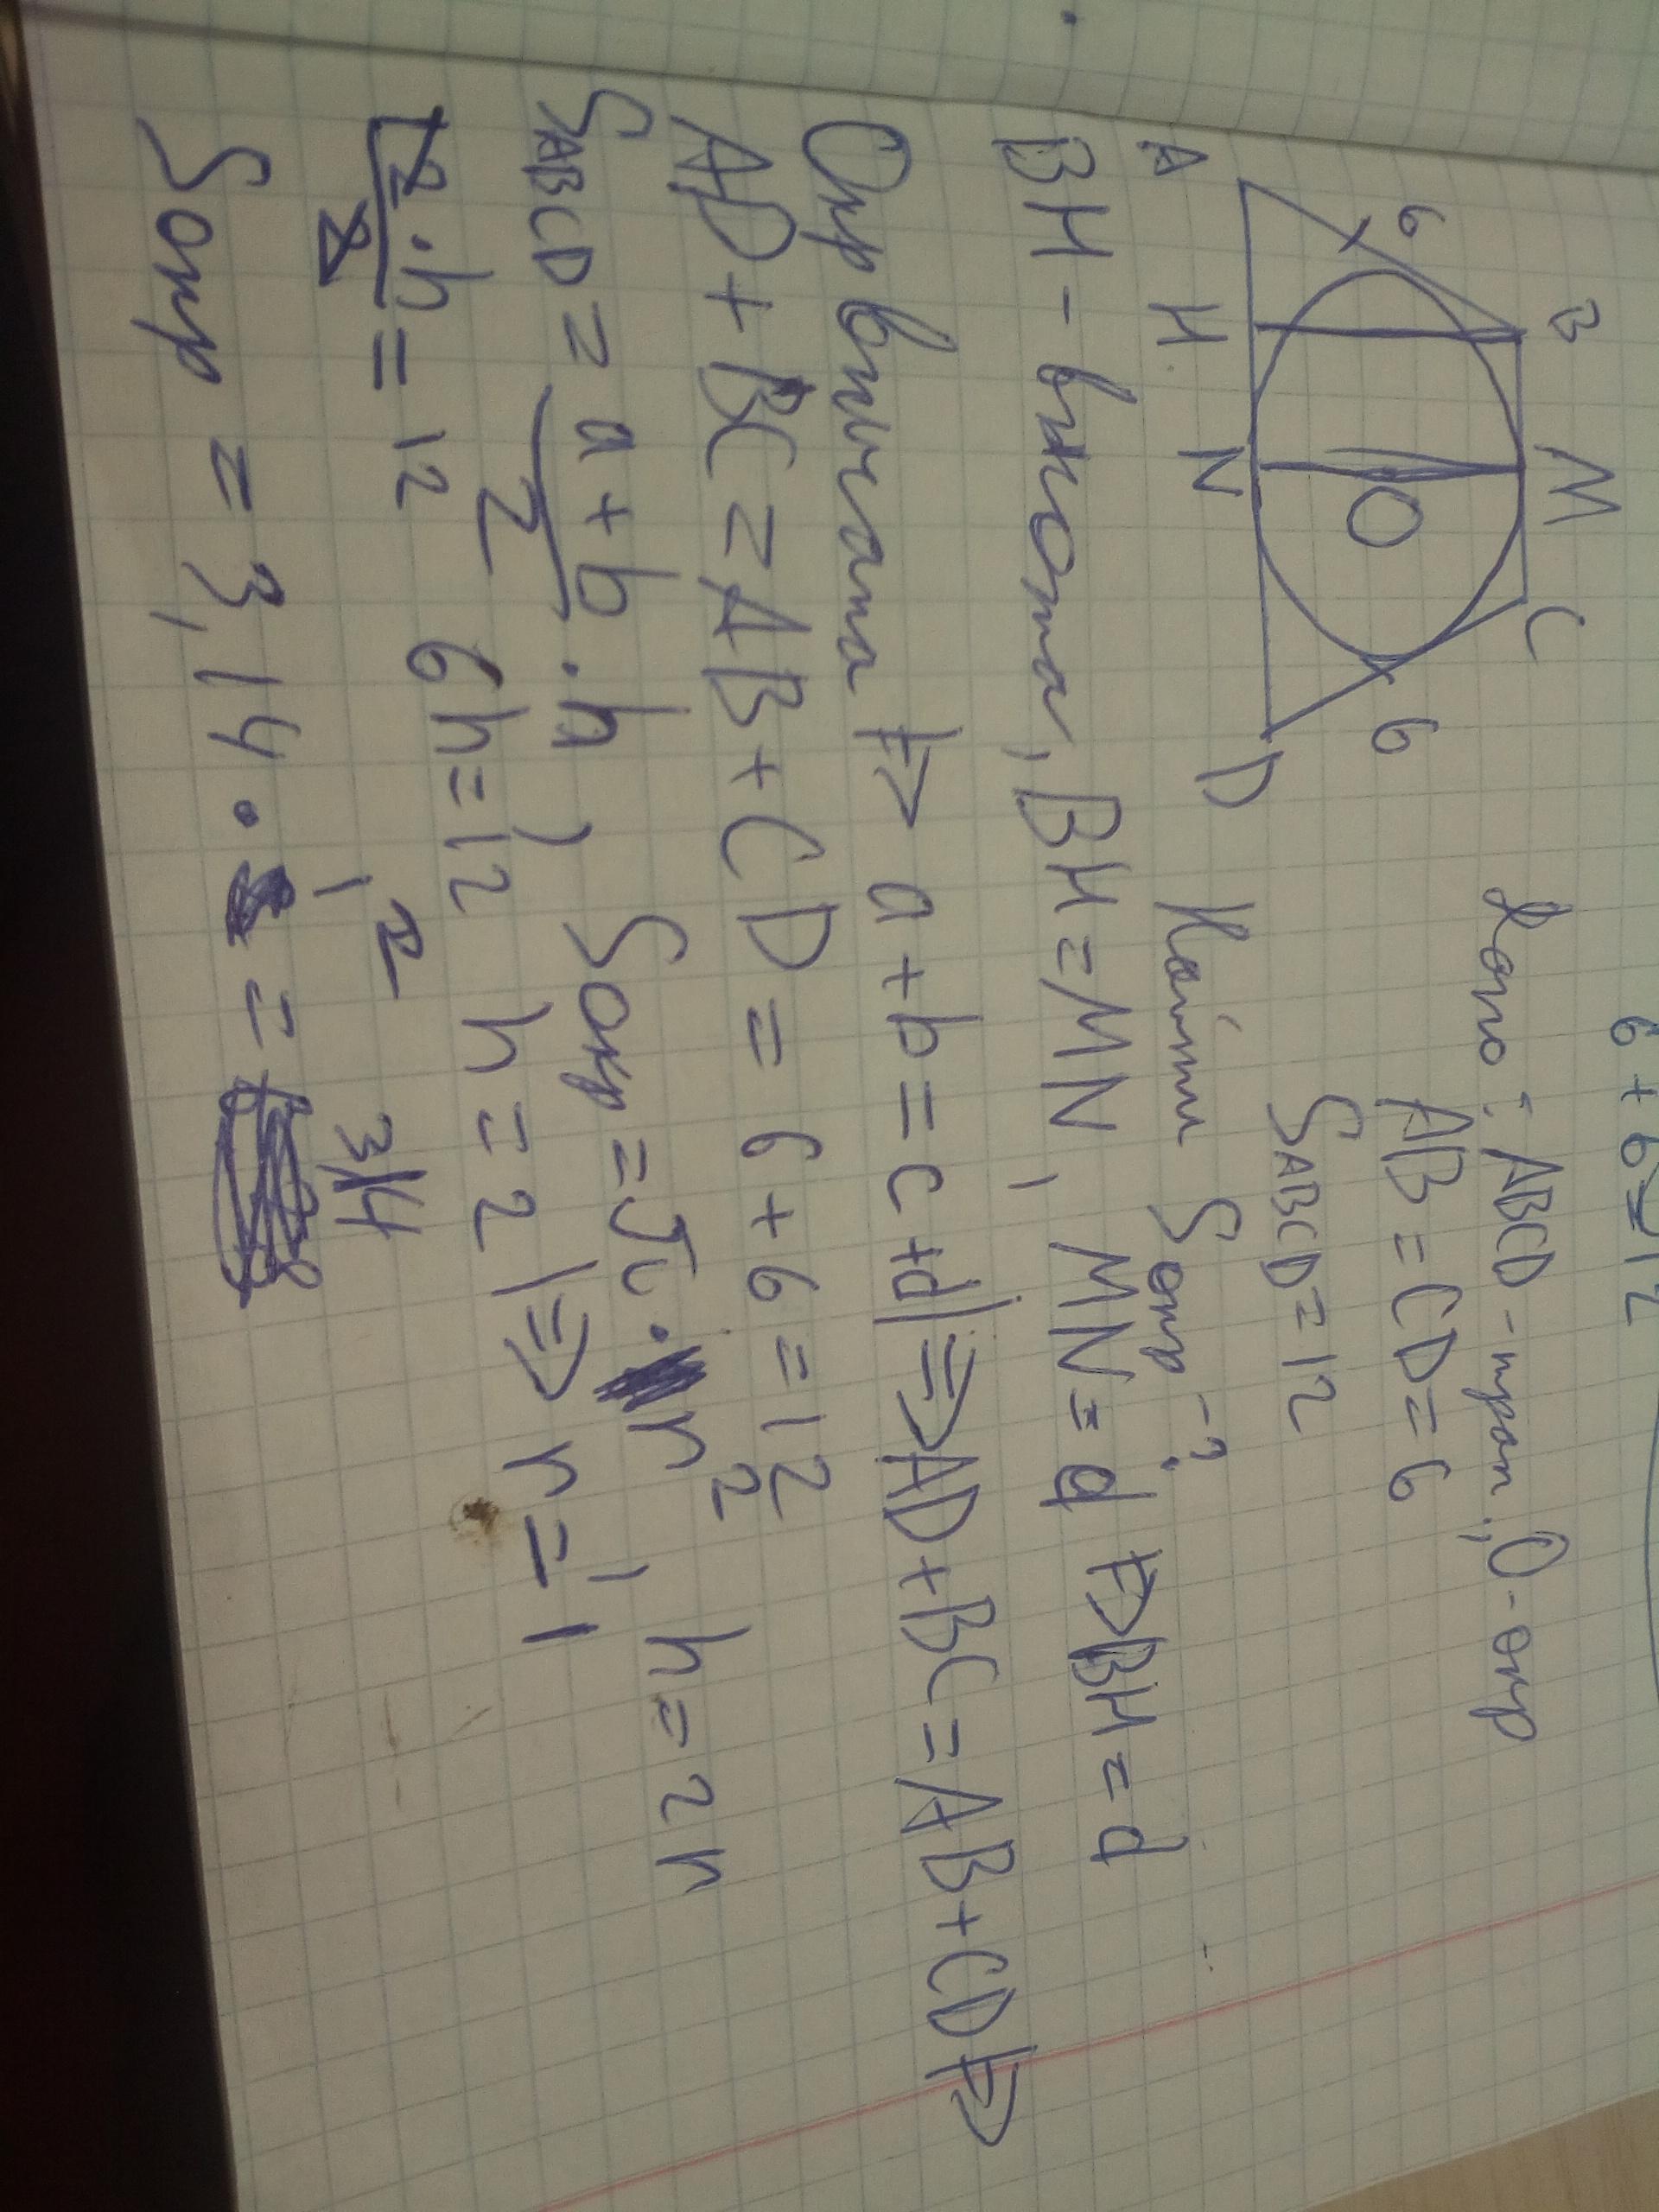 6 + 6 = 12
B M C
6 O 6
A H N D
Дано: ABCD - трап., O - окр
AB = CD = 6
SABCD = 12
Найти Sокр - ?
BH - высота, BH = MN, MN = d |=> BH = d
Окр вписана |=> a + b = c + d |=> AD + BC = AB + CD |=>
AD + BC = AB + CD = 6 + 6 = 12
SABCD = a + b / 2 · h, Sокр = π · r², h = 2r
12 · h / 2 = 12 6h = 12 h = 2 |=> r = 1
Sокр = 3,14 · 1² = 3,14